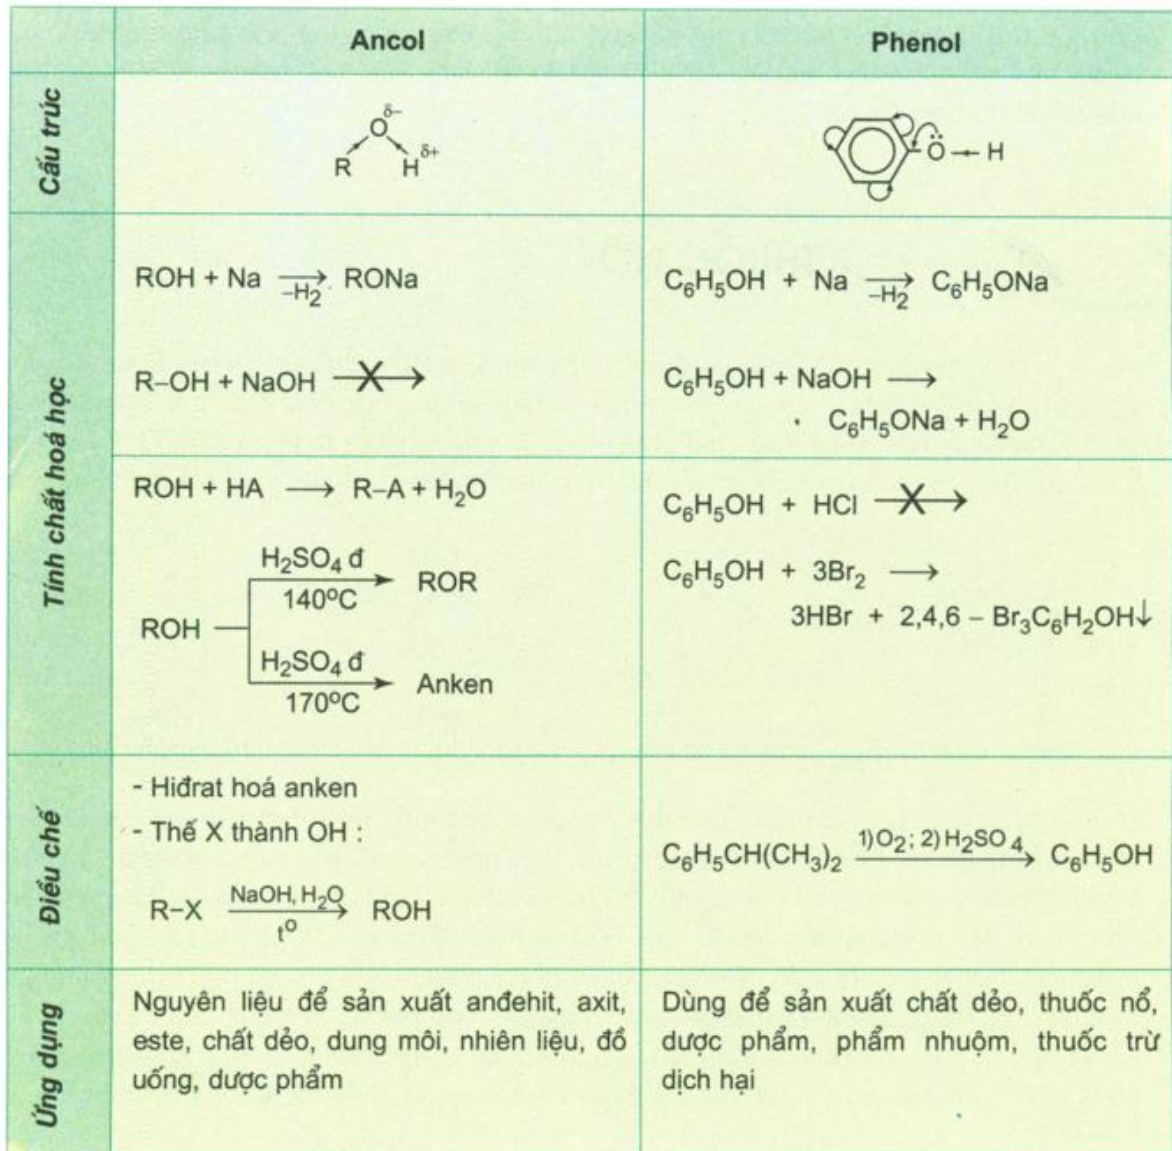 Ancol
Phenol
Cấu trúc
Oδ−
R H δ+
Ö ← H
Tính chất hoá học
ROH + Na →
−H₂ RONa
C₆H₅OH + Na →
−H₂ C₆H₅ONa
R–OH + NaOH —X→
C₆H₅OH + NaOH →
C₆H₅ONa + H₂O
ROH + HA → R–A + H₂O
H₂SO₄ đ
140°C
ROR
ROH
H₂SO₄ đ
170°C
Anken
C₆H₅OH + HCl —X→
C₆H₅OH + 3Br₂ →
3HBr + 2,4,6 – Br₃C₆H₂OH↓
Điều chế
- Hiđrat hoá anken
- Thế X thành OH :
R–X NaOH, H₂O
t° → ROH
C₆H₅CH(CH₃)₂ 1) O₂ ; 2) H₂SO₄ → C₆H₅OH
Ứng dụng
Nguyên liệu để sản xuất anđehit, axit,
este, chất dẻo, dung môi, nhiên liệu, đồ
uống, dược phẩm
Dùng để sản xuất chất dẻo, thuốc nổ,
dược phẩm, phẩm nhuộm, thuốc trừ
dịch hại